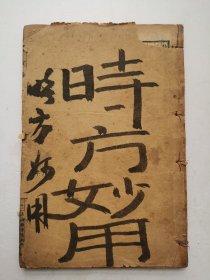 時方妙用
時方妙用